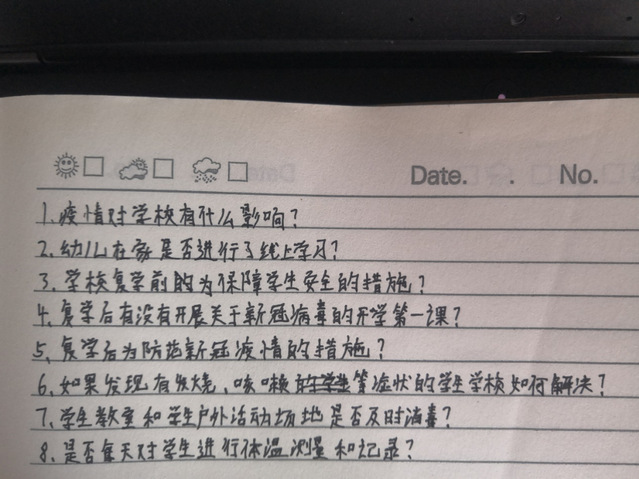 Date. . No.
1. 疫情对学校有什么影响?
2. 幼儿在家是否进行了线上学习?
3. 学校复学前的为保障学生安全的措施?
4. 复学后有没有开展关于新冠病毒的开学第一课?
5. 复学后为防范新冠疫情的措施?
6. 如果发现有发烧、咳嗽等症状的学生学校如何解决?
7. 学生教室和学生户外活动场地是否及时消毒?
8. 是否每天对学生进行体温测量和记录?